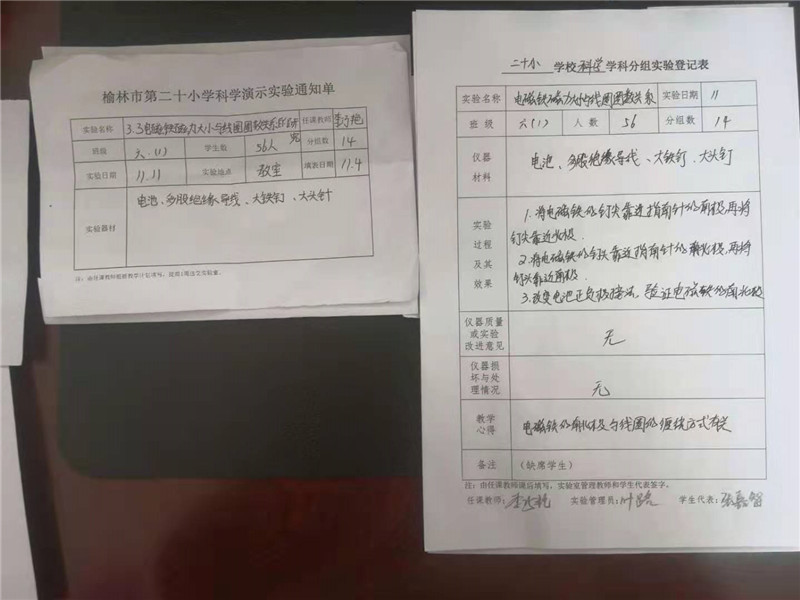 榆林市第二十小学科学演示实验通知单
实验名称 3.3电磁铁磁力大小与线圈圈数关系的研究 任课教师
班级 六.(1) 学生数 56人 分组数 14
实验日期 11.11 实验地点 教室 填表日期 11.4
实验器材 电池、多股绝缘导线、大铁钉、大头针
注：由任课教师根据教学计划填写，提前1周送交实验室。
二十小 学校 科学 学科分组实验登记表
实验名称 电磁铁磁力大小与线圈圈数关系 实验日期 11
班 级 六(1) 人 数 56 分组数 14
仪器材料 电池、多股绝缘导线、大铁钉、大头钉
实验过程及其效果
1.将电磁铁的钉尖靠近指南针的南极,再将
钉尖靠近北极.
2.将电磁铁的钉头靠近指南针的南北极,再将
钉头靠近南极.
3.改变电池正负极接法,验证电磁铁的南北极
仪器质量或实验改进意见 无
仪器损坏与处理情况 无
教学心得 电磁铁的南北极与线圈的缠绕方式有关
备注 (缺席学生)
注：由任课教师课后填写，实验室管理教师和学生代表签字。
任课教师： 实验管理员： 学生代表：